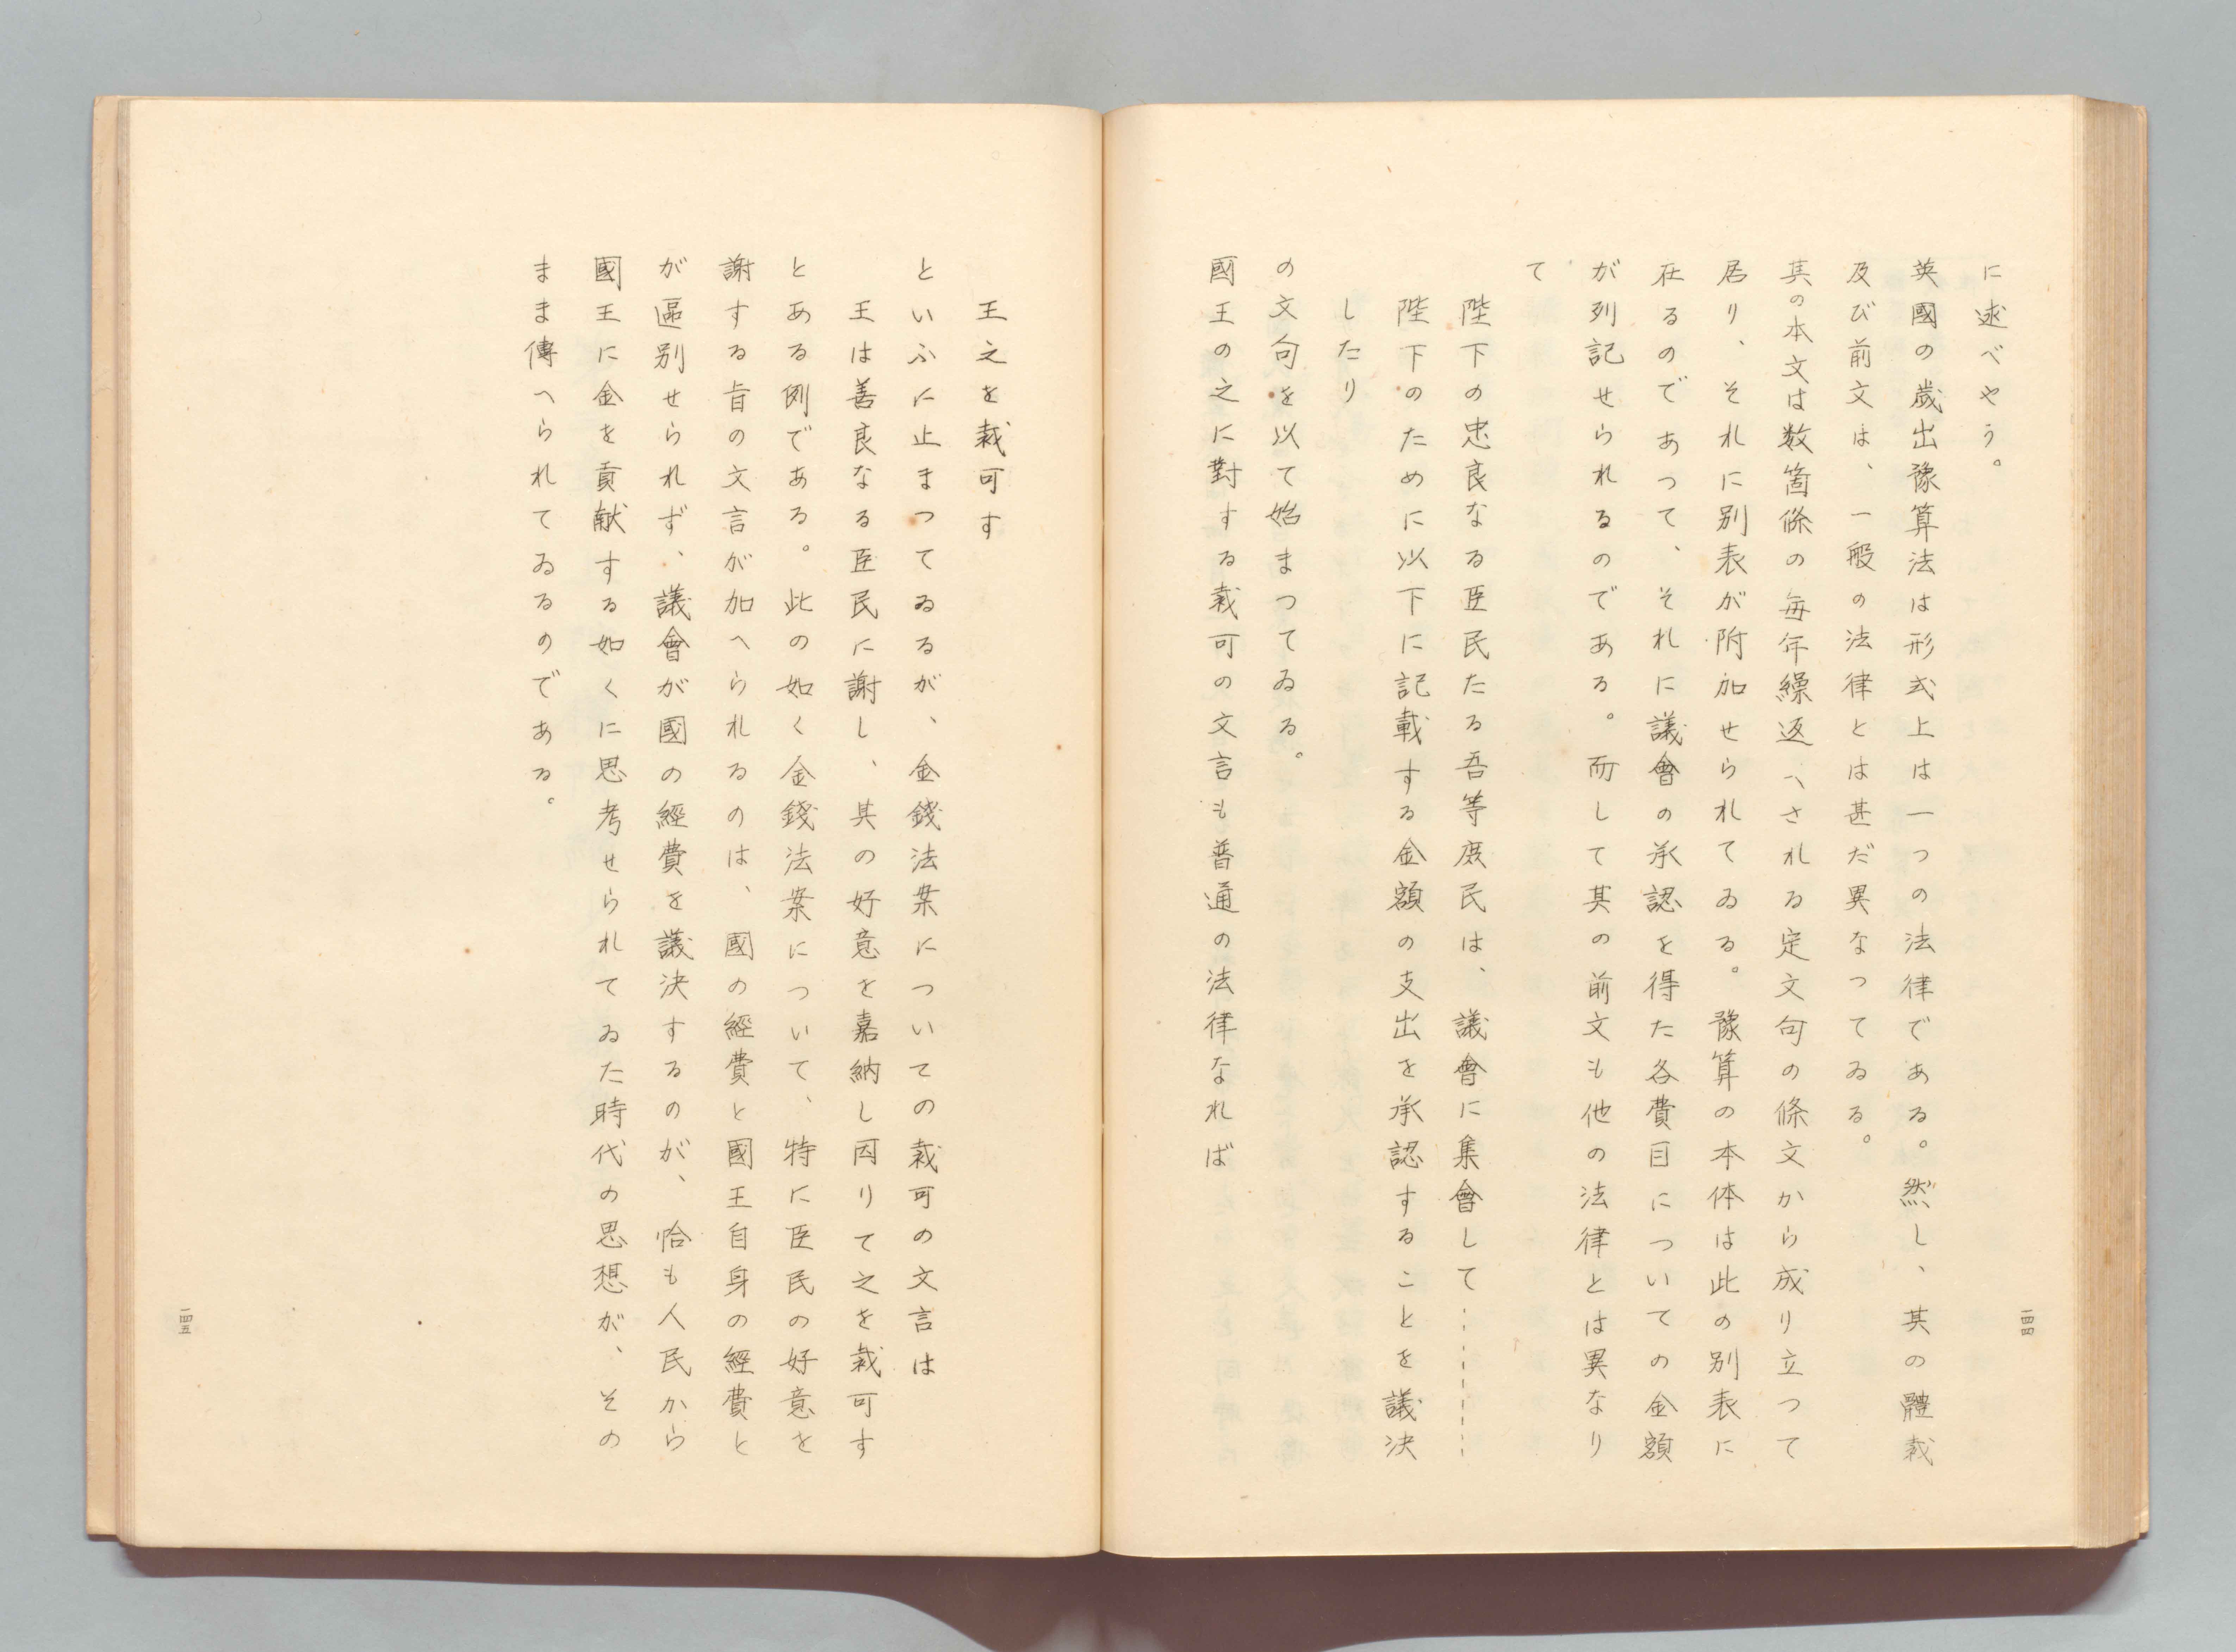 に述べやう。
英國の歲出豫算法は形式上は一つの法律である。然し、其の體裁
及び前文は、一般の法律とは甚だ異なつてゐる。
其の本文は数箇條の每年繰返へされる定文句の條文から成り立つて
居り、それに別表が附加せられてゐる。豫算の本体は此の別表に
在るのであつて、それに議會の承認を得た各費目についての金額
が列記せられるのである。而して其の前文も他の法律とは異なり
て
陛下の忠良なる臣民たる吾等庶民は、議會に集會して…………
陛下のために以下に記載する金額の支出を承認することを議決
したり
の文句を以て始まつてゐる。
國王の之に對する裁可の文言も普通の法律なれば
一四四
王之を裁可す
といふに止まつてゐるが、金錢法案についての裁可の文言は
王は善良なる臣民に謝し、其の好意を嘉納し因りて之を裁可す
とある例である。此の如く金錢法案について、特に臣民の好意を
謝する旨の文言が加へられるのは、國の經費と國王自身の經費と
が區別せられず、議會が國の經費を議決するのが、恰も人民から
國王に金を貢献する如くに思考せられてゐた時代の思想が、その
まま傳へられてゐるのである。
一四五